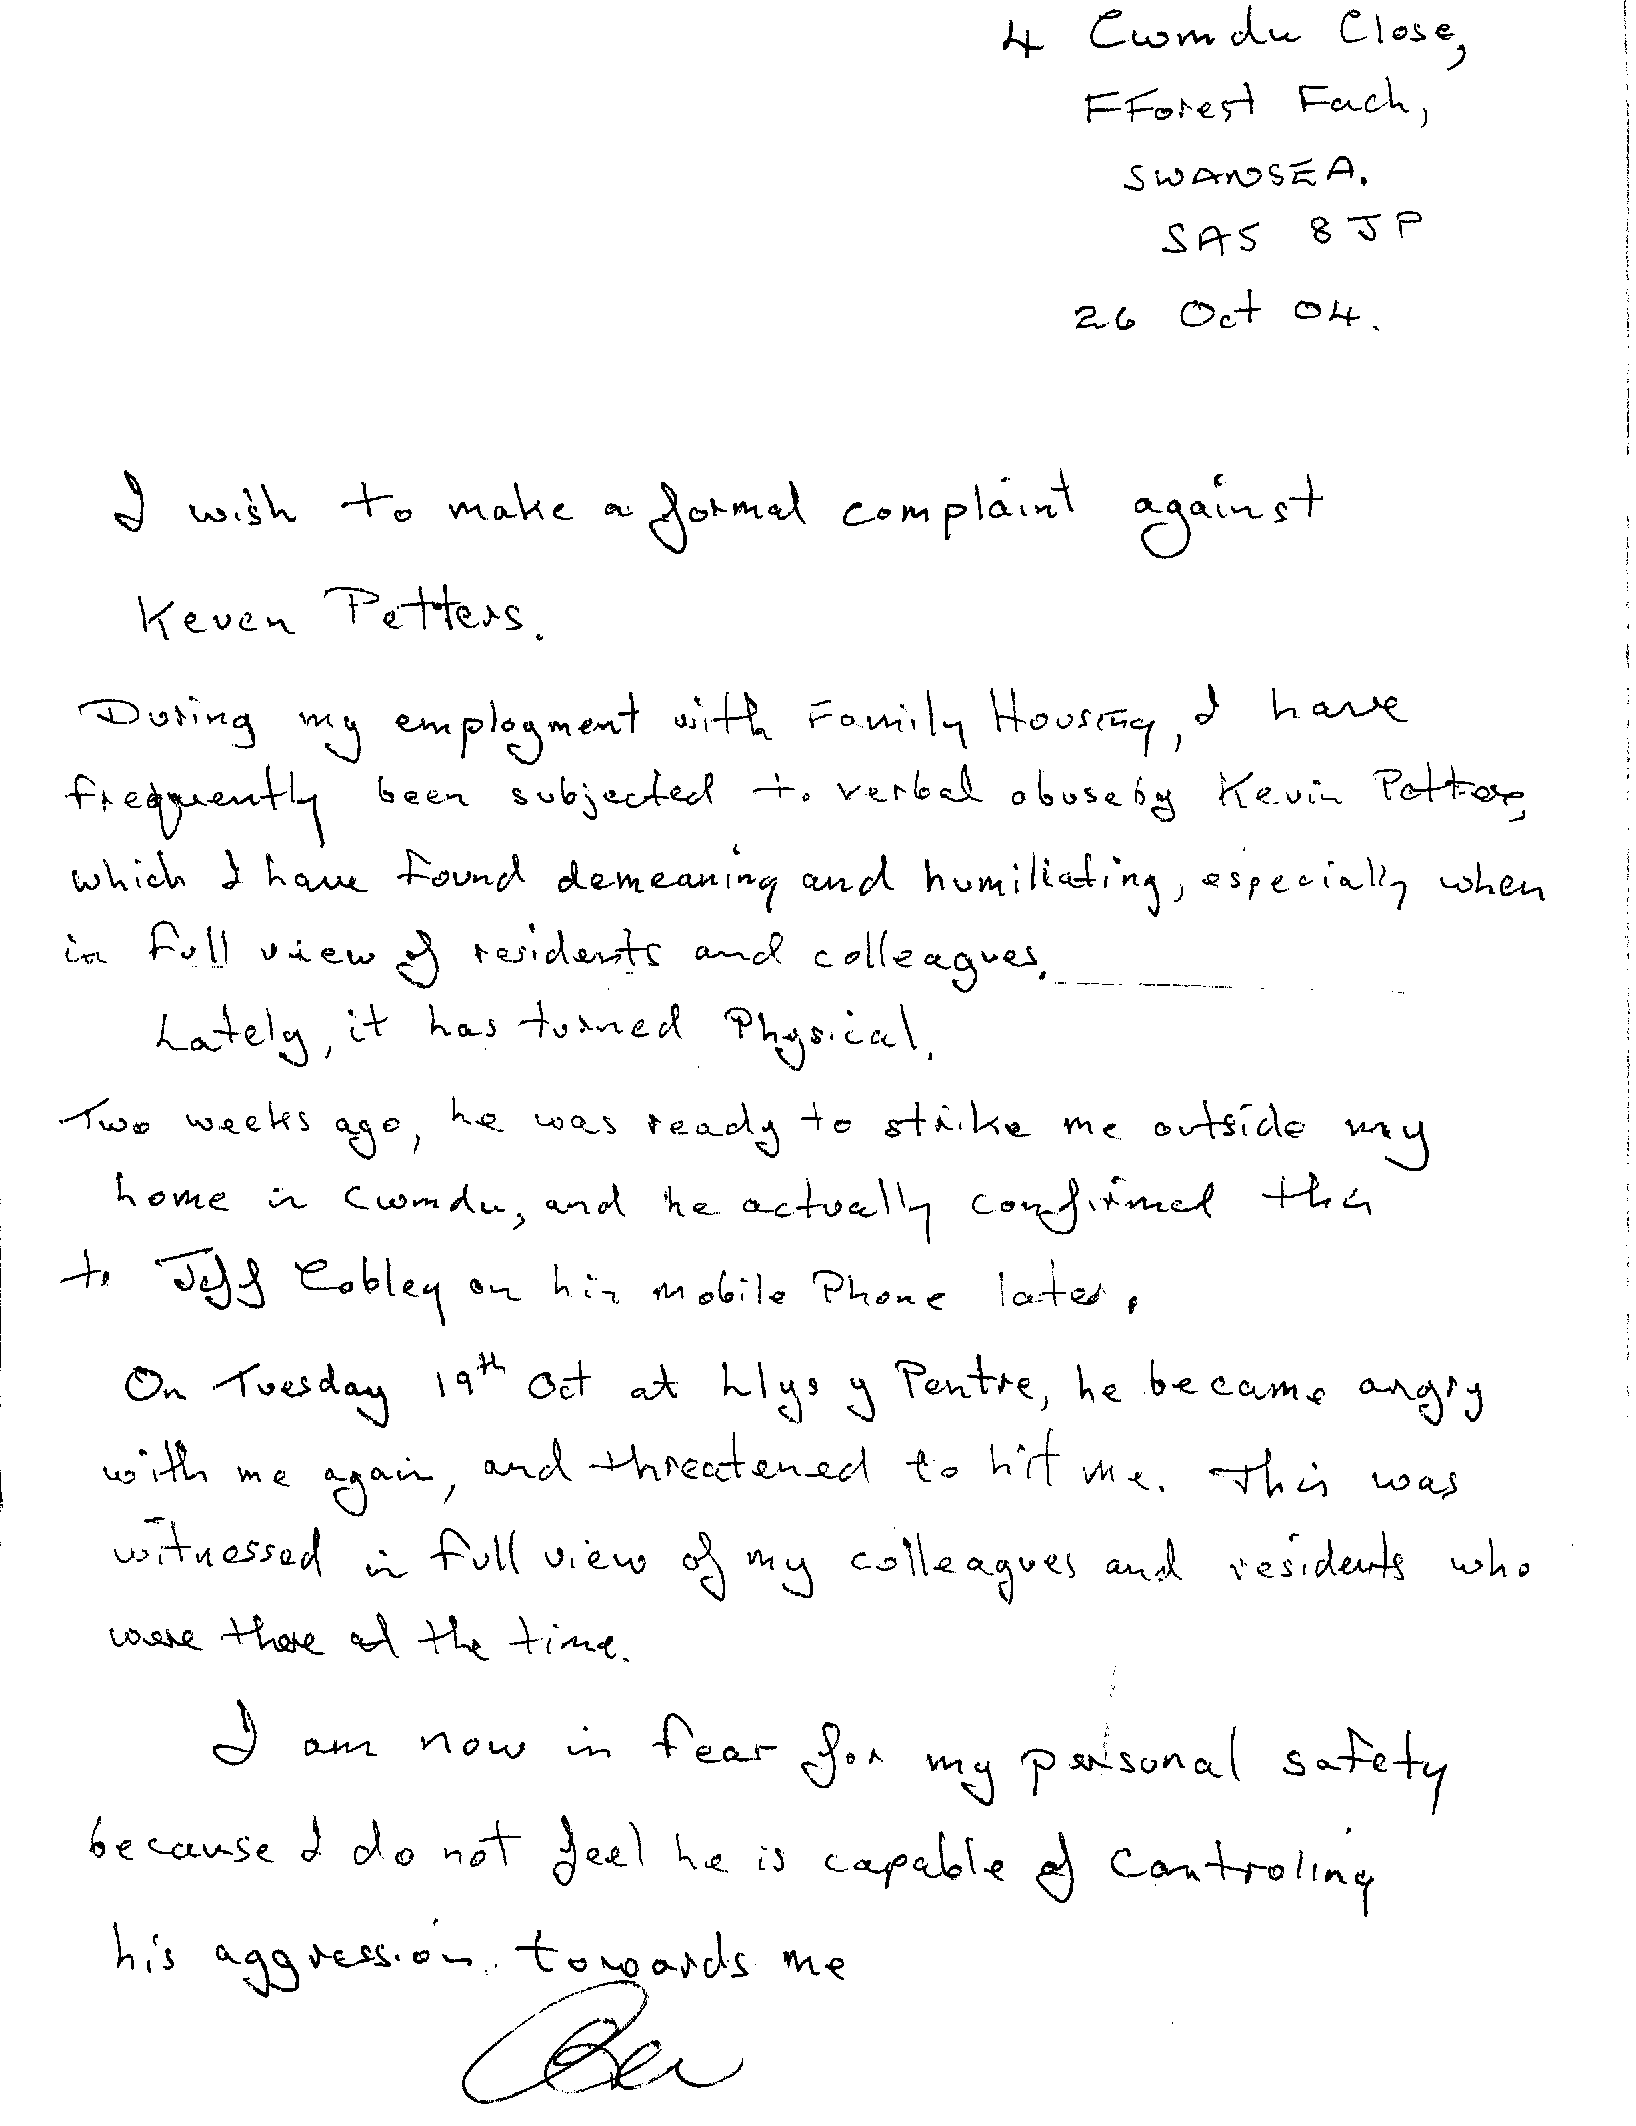 4 Cwmdu Close,
FForest Fach,
SWANSEA.
SA5 8JP
26 Oct 04.
I wish to make a formal complaint against
Keven Petters.
During my employment with Family Housing, I have
frequently been subjected to verbal abuse by Kevin Potter,
which I have found demeaning and humiliating, especially when
in full view of residents and colleagues.
Lately, it has turned Physical.
Two weeks ago, he was ready to strike me outside my
home in Cwmdu, and he actually confirmed this
to Jeff Cobley on his mobile Phone later.
On Tuesday 19th Oct at Llys y Pentre, he became angry
with me again, and threatened to hit me. This was
witnessed in full view of my colleagues and residents who
were there at the time.
I am now in fear for my personal safety
because I do not feel he is capable of controling
his aggression towards me